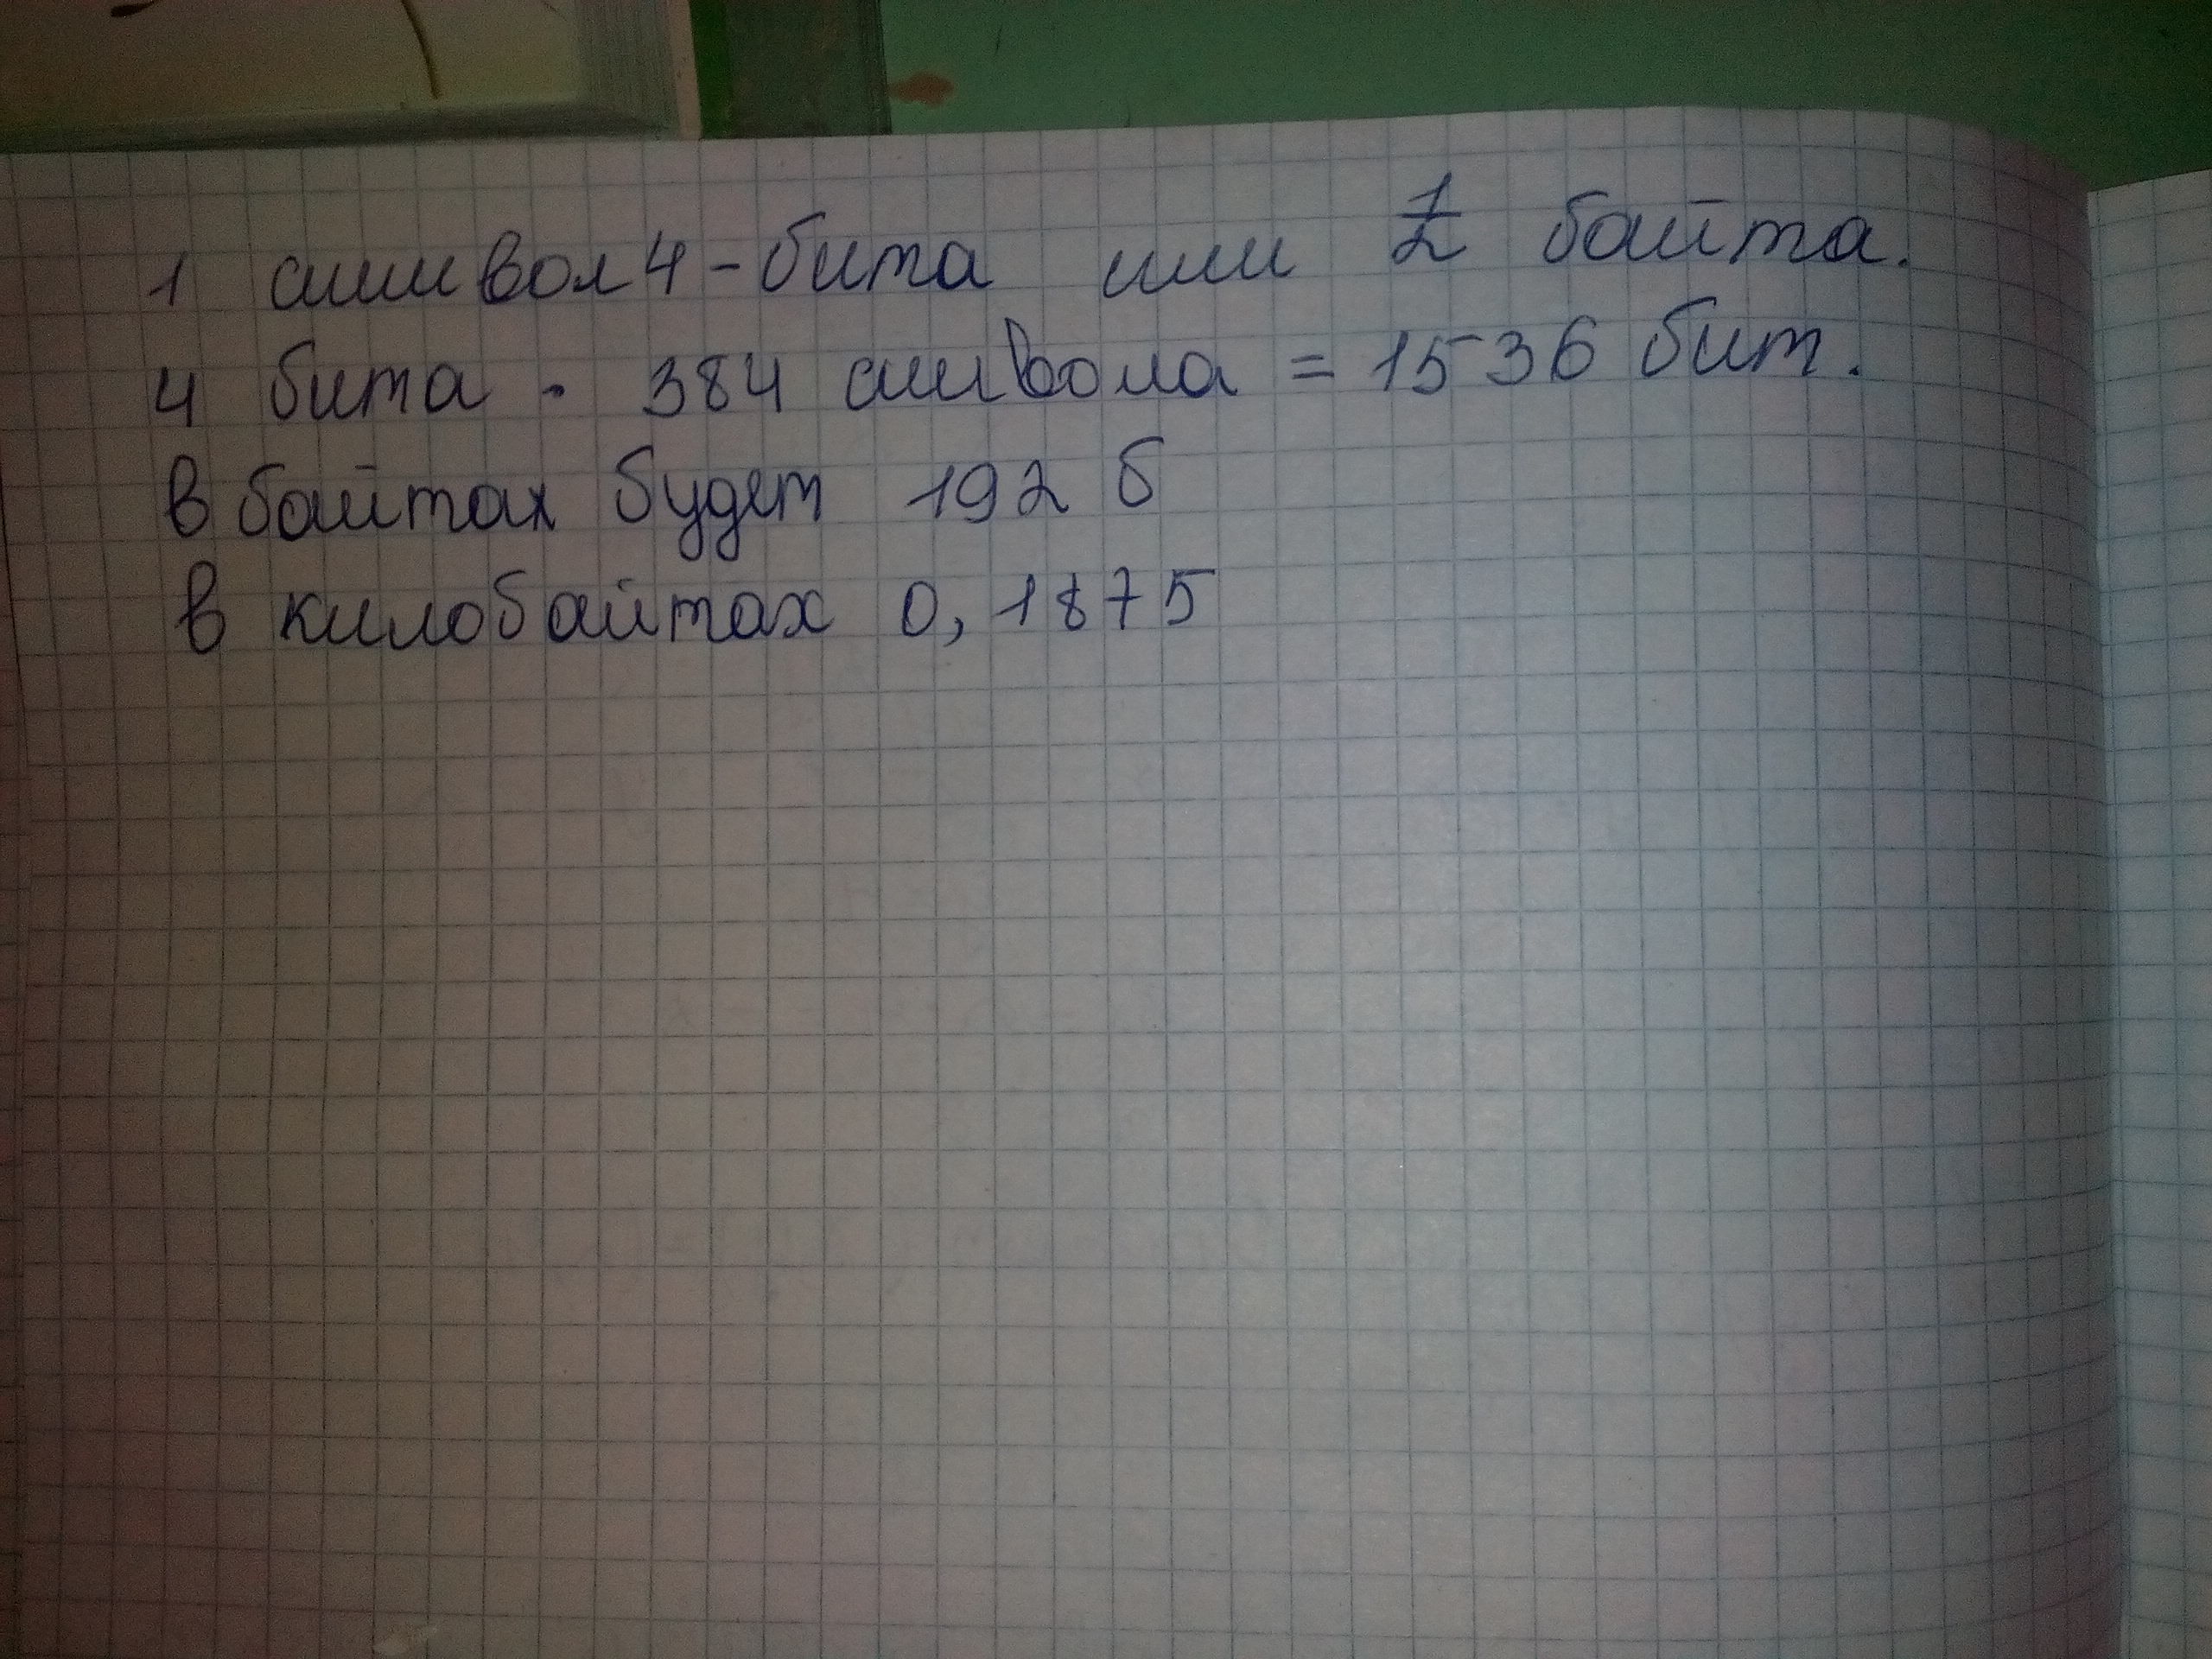 1 символ 4-бита или 1/2 байта.
4 бита · 384 символа = 1536 бит.
в байтах будет 192 б
в килобайтах 0,1875